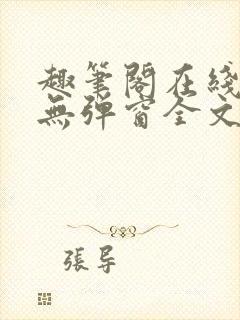 趣筆閣在綫
無彈窗全文
張导